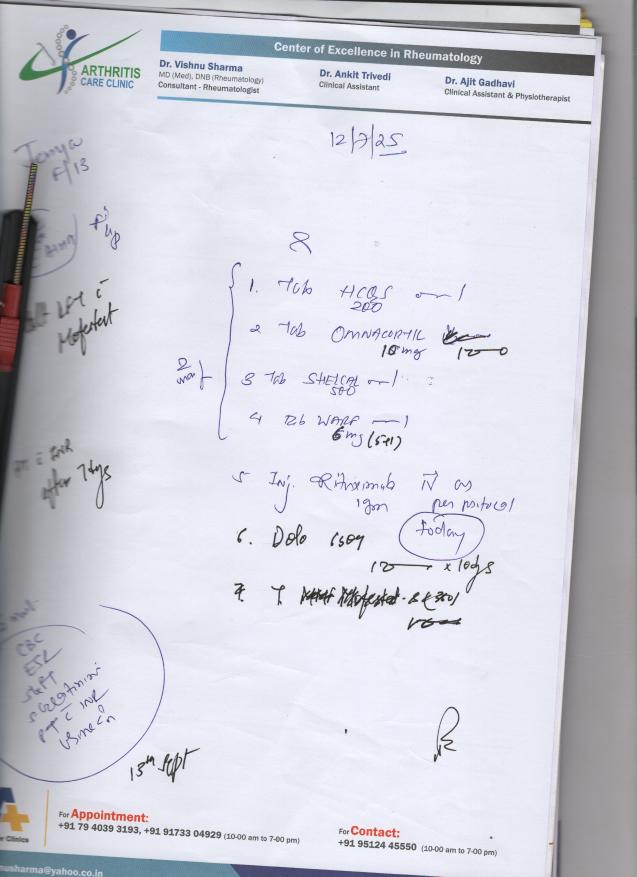 Center of Excellence in Rheumatology
ARTHRITIS
CARE CLINIC
Dr. Vishnu Sharma
MD (Med), DNB (Rheumatology)
Consultant - Rheumatologist
Dr. Ankit Trivedi
Clinical Assistant
Dr. Ajit Gadhavi
Clinical Assistant & Physiotherapist
12/7/25
F/13
1. Tab HCQS 1
200
2 Tab OMNACORTIL
10 mg
3 Tab SHELCAL 1
500
4 Tab WARF 1
6 mg (5+1)
5 Inj. Rituximab IV as
1gm per protocol
today
6. Dolo 650
x 10dys
INR
after 7 dys
CBC
ESR
SGPT
s creatinine
INR
13th Sept
For Appointment:
+91 79 4039 3193, +91 91733 04929 (10-00 am to 7-00 pm)
For Contact:
+91 95124 45550 (10-00 am to 7-00 pm)
r Clinics
nusharma@yahoo.co.in